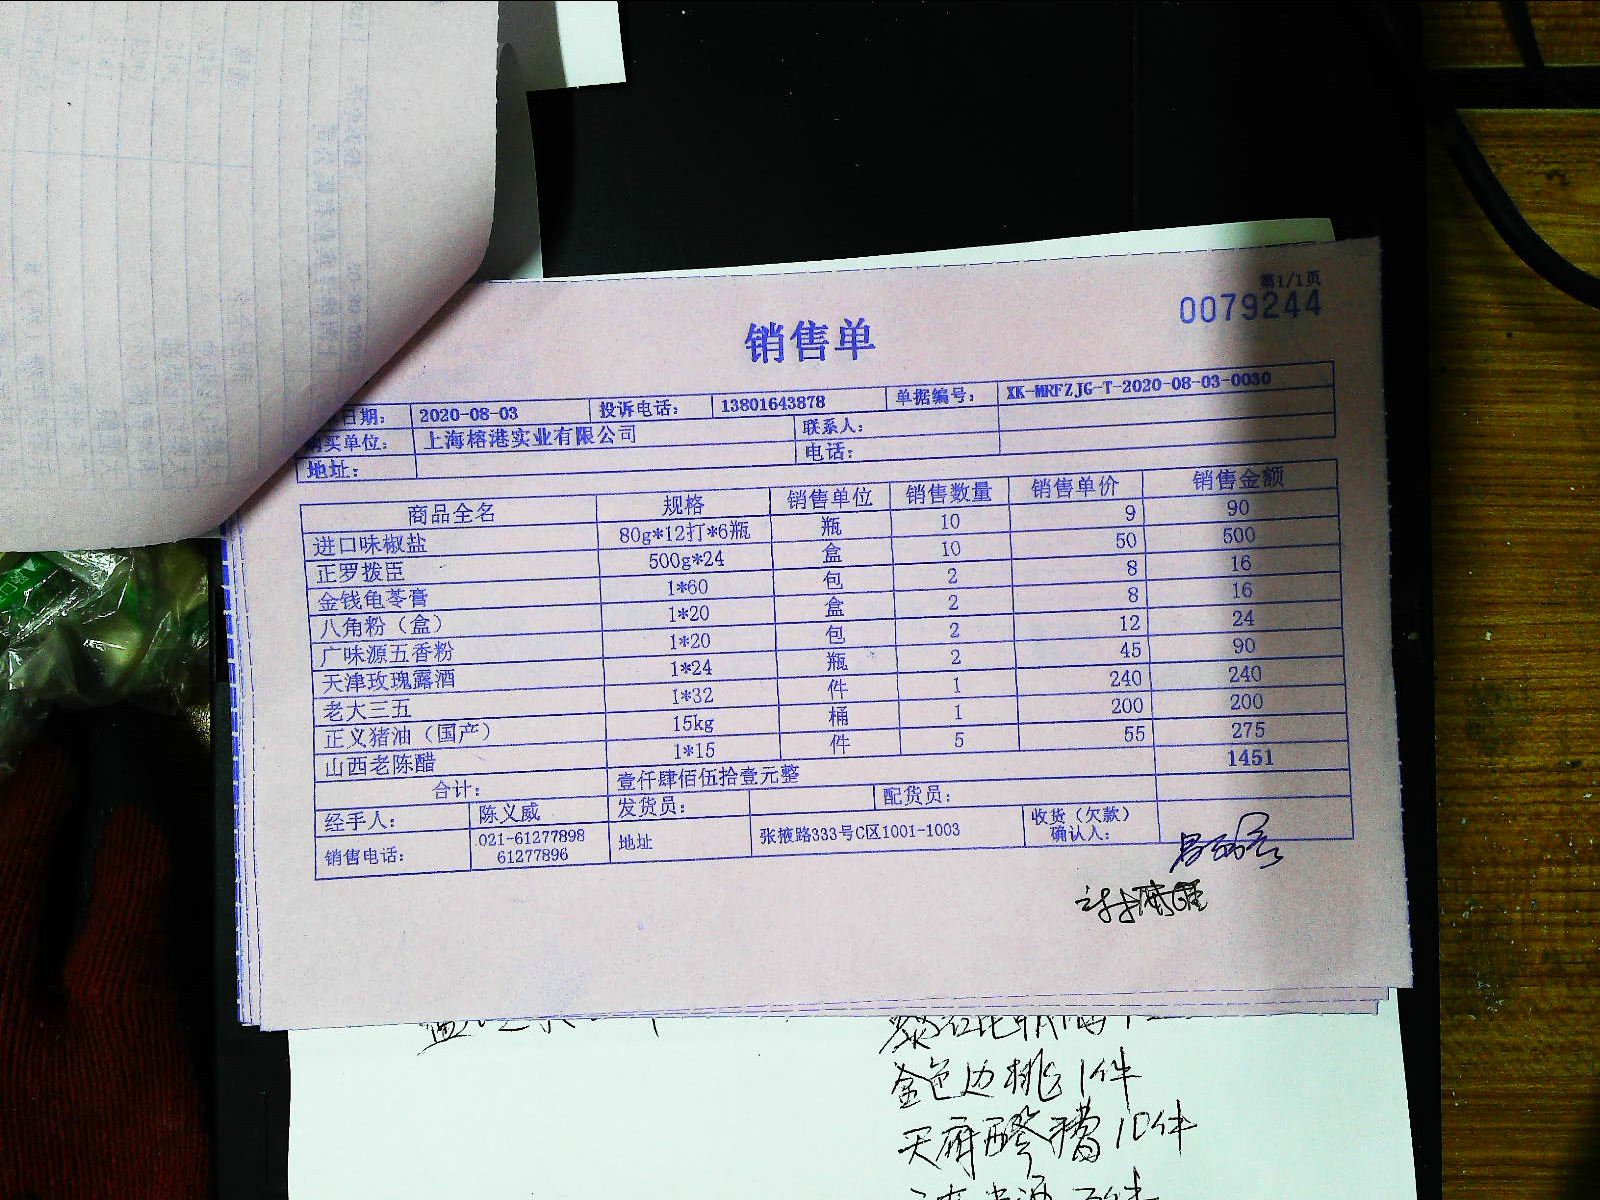 第1/1页
0079244
销售单
日期： 2020-08-03 投诉电话： 13801643878 单据编号： XK-MRFZJG-T-2020-08-03-0030
购买单位： 上海榕港实业有限公司 联系人：
地址： 电话：
商品全名 规格 销售单位 销售数量 销售单价 销售金额
进口味椒盐 80g*12打*6瓶 瓶 10 9 90
正罗拨臣 500g*24 盒 10 50 500
金钱龟苓膏 1*60 包 2 8 16
八角粉（盒） 1*20 盒 2 8 16
广味源五香粉 1*20 包 2 12 24
天津玫瑰露酒 1*24 瓶 2 45 90
老大三五 1*32 件 1 240 240
正义猪油（国产） 15kg 桶 1 200 200
山西老陈醋 1*15 件 5 55 275
合计： 壹仟肆佰伍拾壹元整 1451
经手人： 陈义威 发货员： 配货员：
销售电话： 021-61277898 61277896 地址 张掖路333号C区1001-1003 收货（欠款）确认人：
金色边桃1件
天府醪糟10件